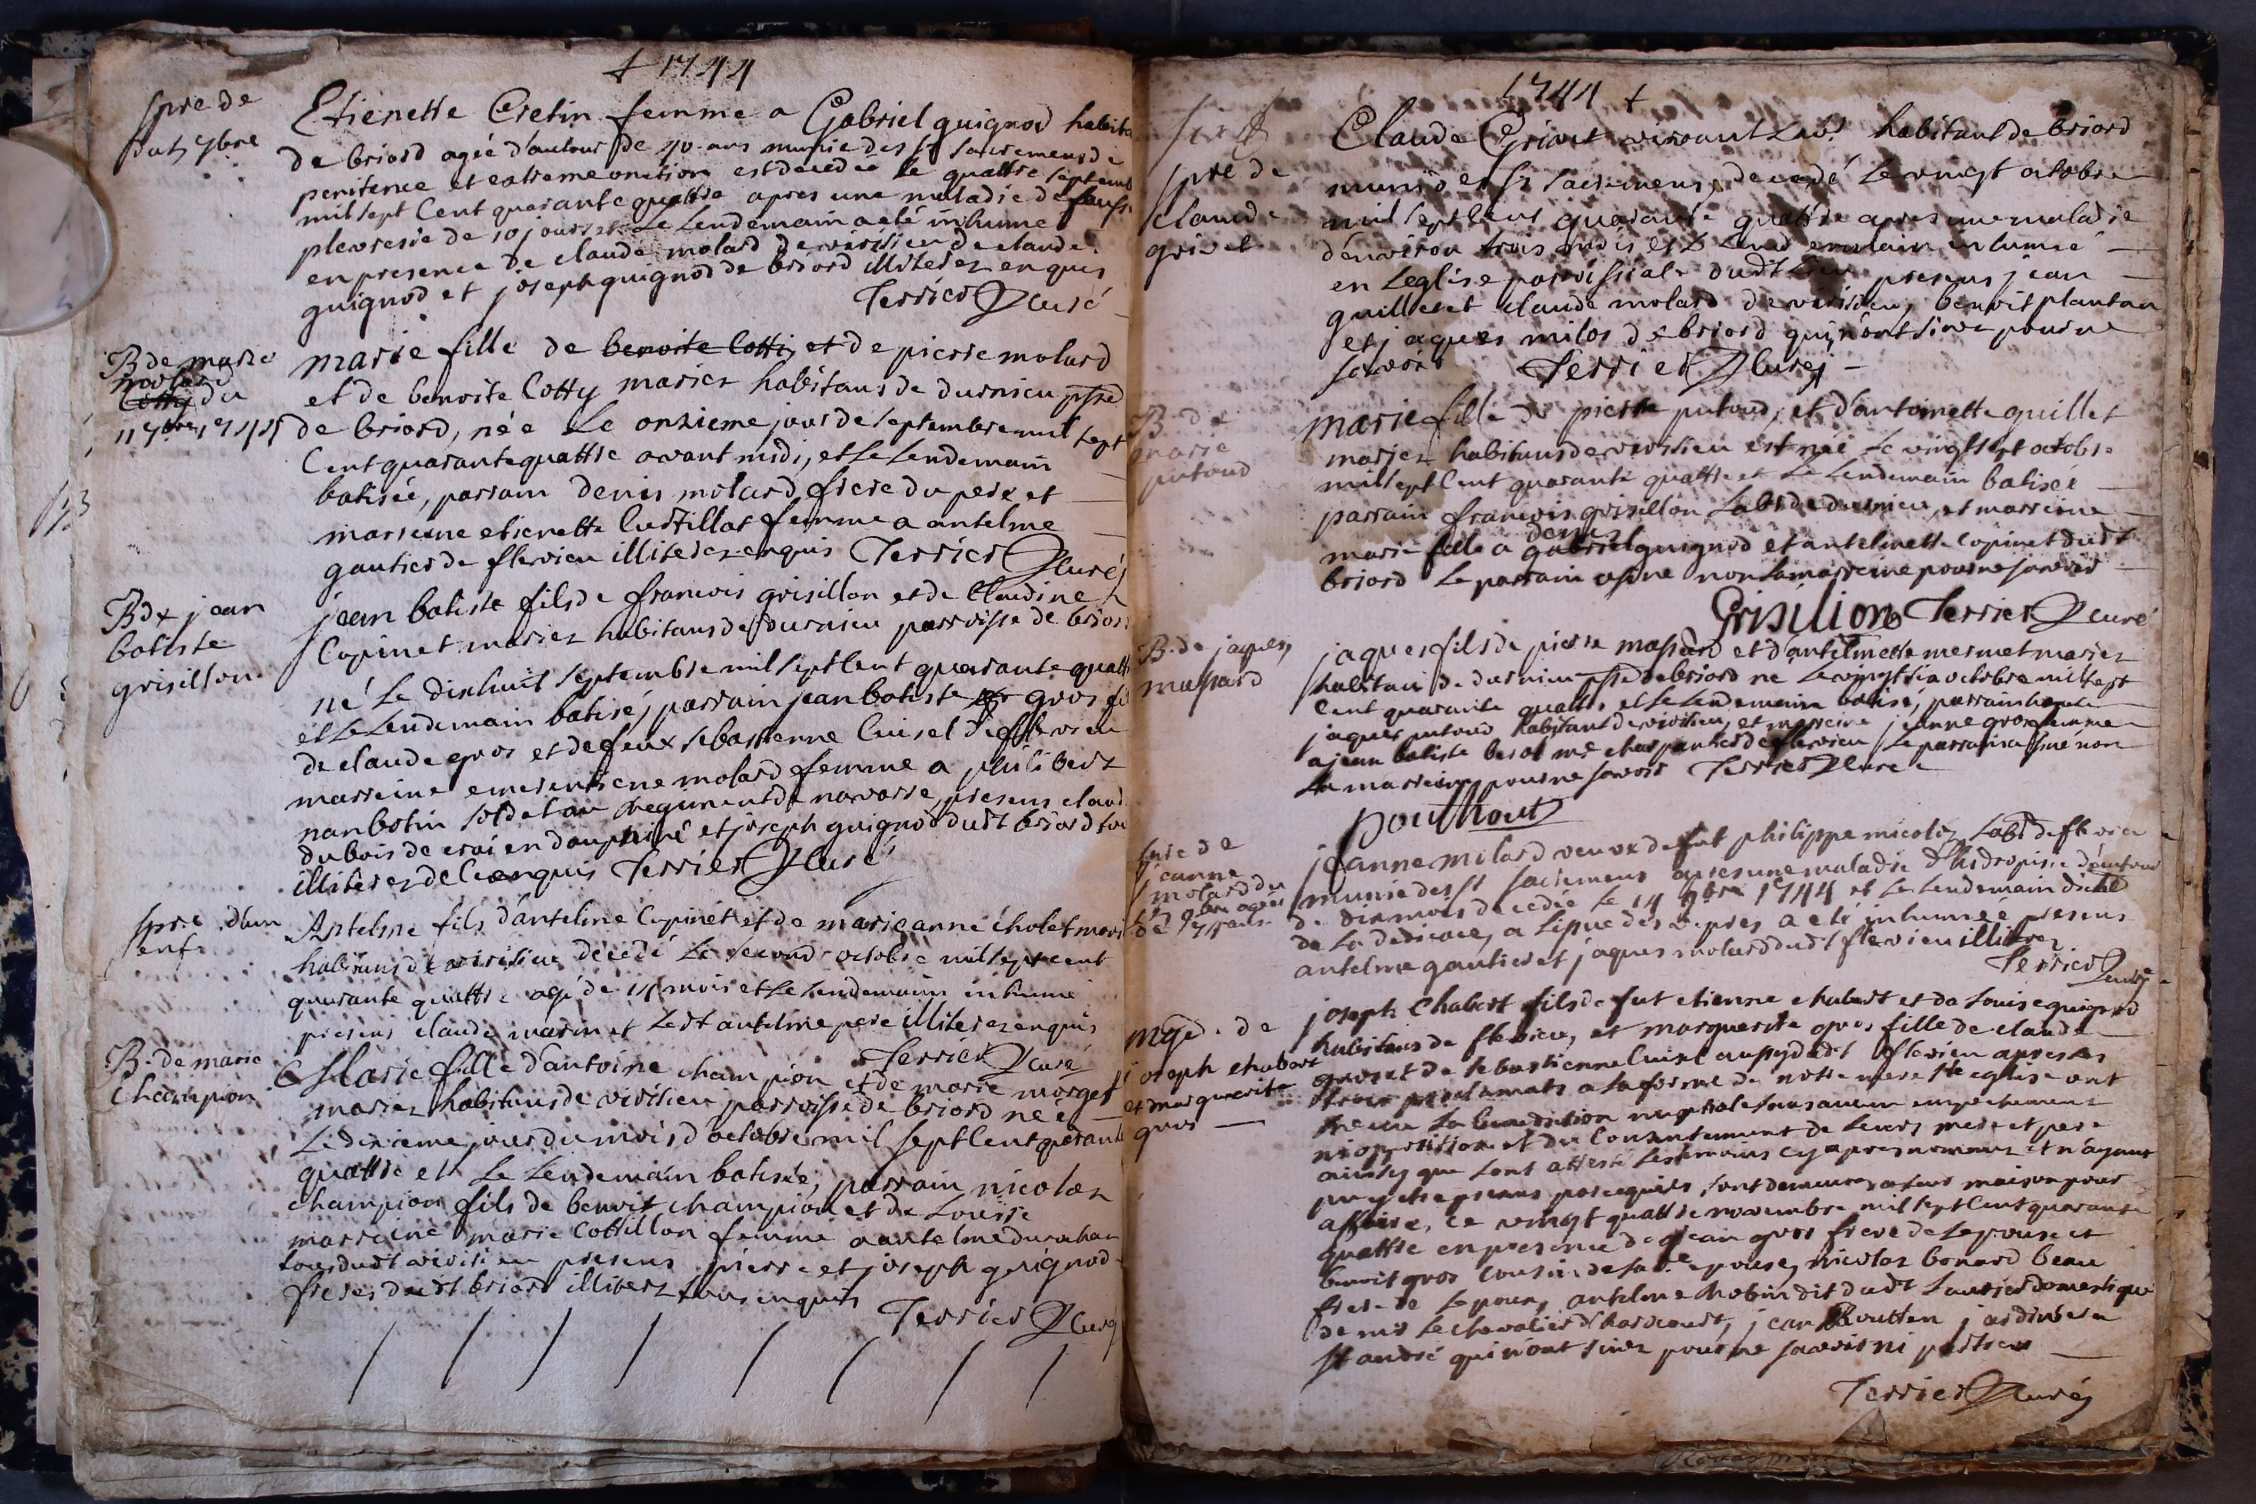 + 1744
spre de
du 4 7bre
Etienette Cretin femme a Gabriel guignod habita
de briord agée d'autour de 40 ans munie des sts sacremens de
penitence et extreme onction est decedée le quattre septemb
mil sept Cent quarante quattre apres une maladie de fausse
pleuresie de 10 jours et Le Lendemain a eté inhumé
en presence de claude molard de verisieu de claude
guignod et joseph guignod de briord illiterez enquis
Terrier Curé
B de marie
molard
Cotty du
11 7bre 1744
marie fille de benoite Cotti et de pierre molard
et de benoite Cotty mariez habitans de dornieu psse
de briord, née Le onzieme jour de septembre mil sept
Cent quarante quattre avant midi, et Le Lendemain
batisée, parrain denis molard frere du pere et
marreine etienette Curtillat femme a antelme
gautier de flevieu illiterez enquis Terrier Curé
B de jean
batiste
grisillon
jean batiste fils de francois grisillon et de Claudine
Copinet mariez habitans de dornieu parroisse de briord
né Le dixhuit septembre mil sept Cent quarante quatt
et Le Lendemain batisé, parrain jean batiste gros fil
de claude gros et de feux sebastienne Cuisel de flevieu
marreine emerentiene molard femme a philibert
nanbotin soldet au regiment de navarre, presens claud
dubois de crai en dauphiné et joseph guignod dudt briord tou
illiterez de Ce enquis Terrier Curé
spre d'un
enf.
Antelme fils d'antelme Copinet et de marieanne cholet mari
habitans de verisieu decedé Le second octobre mil sept cent
quarante quattre agé de 14 mois et Le Lendemain inhumé
presens claude marin et Ledt antelme pere illiterez enquis
Terrier Curé
B. de marie
Champion
Marie fille d'antoine champion et de marie morget
mariez habitans de virisieu parroisse de briord née
Le dixieme jour du mois d'octobre mil sept Cent quarante
quattre et Le Lendemain batisée, parrain nicolas
champion fils de benoit champion et de Louise
marreine marie Cottillon femme a antelme
tous dudt virisieu presens pierre et joseph guignod
freres dudt briord illiterz tous enquis
Terrier Curé
1744 +
spre de
claude
grivet
Claude Grivet vivant Labr habitant de briord
muni des sts sacremens, decedé Le vingt octobre
mil sept Cens quarante quattre apres une maladie
d'environ trois mois et Le Lendemain inhumé
en Leglise parroissiale dudt Lieu presens jean
quilleret claude molard de verisieu, benoit plantan
et jaques milos de briord qui n'ont sine pour ne
savoir Terrier Curé
B. de
marie
putoud
marie fille de pierre putoud, et d'antoinette quillet
mariez habitans de virisieu est née Le vingt sept octobre
mil sept Cent quarante quattre et Le Lendemain batisée
parrain francois grisillon Labr de dornieu, et marreine
marie fille a denis gabriel guignod et antelmette Copinet dudt
briord Le parrain asine non La marreine pour ne savoir
Grisillon Terrier Curé
B. de jaques
massard
jaques fils de pierre massard et d'antelmette mermet mariez
habitans de dornieu psse de briord ne Le vingt six octobre mil sept
Cent quarante quattre et Le Lendemain batisé, parrain
jaques putoud habitant de virisieu, et marreine jeanne gros femme
a jean batiste me charpantier de flevieu Le parrain a siné non
La marreine pour ne savoir Terrier Curé
spre de
jeanne
molard du
jeanne milard veuve de fut philippe micolez Labr de flevieu
munie des sts sacremens apres une maladie d'hidropisie d'autour
de dix mois decedée Le 14 9bre 1744 et Le Lendemain
de La dedicace, a Lissue des vepres a eté inhumée presens
antelme gautier et jaques molard dudt flevieu illiterez
Terrier Curé
mge. de
joseph chabert
et marguerite
gros
joseph Chabert fils de fut etienne chabert et de Louise guignod
habitans de flevieu, et marguerite gros fille de claude
gros et de sebastienne Cuisel aussy dudt flevieu apres les
trois proclamats a La forme de notre mere ste eglise ont
recu La benediction nuptiale sans aucun empechement
ni opposition et du Consentement de Leurs mere et pere
ainsy que Lont attesté Les temoins cy apres nommez et n'ayant
pu y etre presens parcequils sont demeurez a leur maison pour
affaire, Ce vingt quattre novembre mil sept Cent quarante
quattre en presence de jean gros frere de Lepouse et
benoit gros Cousin de Lade epouse, nicolas bonard beau
frere de Lepoux, antelme Robin dit dudt domestique
de mr Le chevalier d'harcourt, jean Routten jardinier a
st andré qui n'ont sinez pour ne savoir ni parties
Terrier Curé